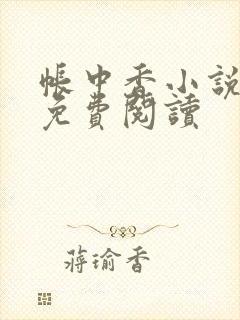 帳中香小說
免費閱讀
蔣瑜香